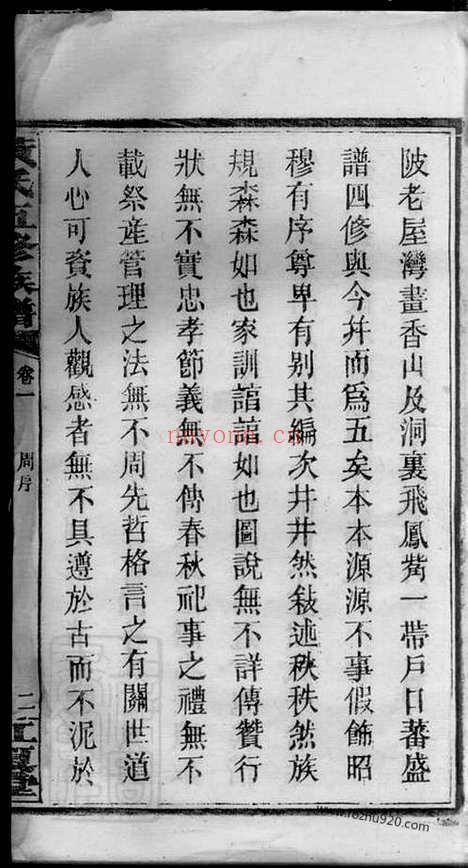 陂老屋灣畫香山及洞裏飛鳳觜一帶戶口蕃盛
譜四修與今幷而爲五矣本本源源不事假飾昭
穆有序尊卑有别其編次井井然敍述秩秩然族
規森森如也家訓諳諳如也圖說無不詳傳贊行
狀無不實忠孝節義無不傳春秋祀事之禮無不
載祭産管理之法無不周先哲格言之有關世道
人心可資族人觀感者無不具遵於古而不泥於
黃氏五修族譜
卷一
周序
二
江夏堂
nayona.cn
www.fozhu920.com